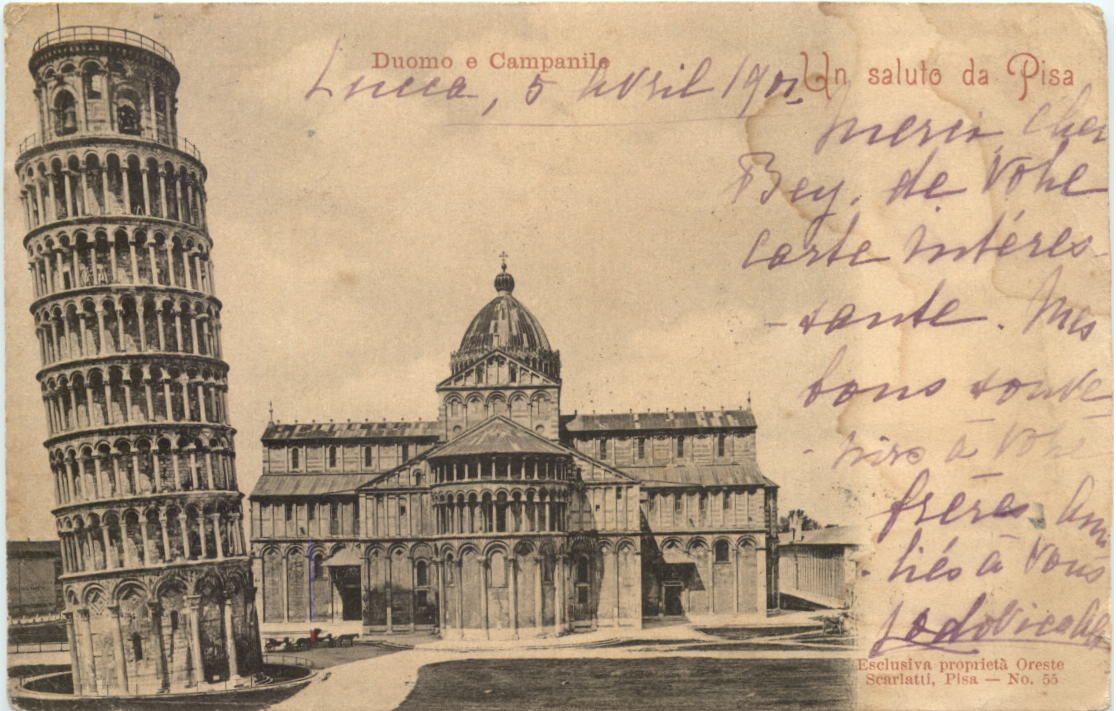 Duomo e Campanile
Un saluto da Pisa
Lucca, 5 Avril 1901
Merci, cher
Bey, de Votre
carte intéres-
-sante. Mes
bons souve-
-nirs à Votre
frères. Ami
-tiés à Vous
Esclusiva proprietà Oreste
Scarlatti, Pisa — No. 55